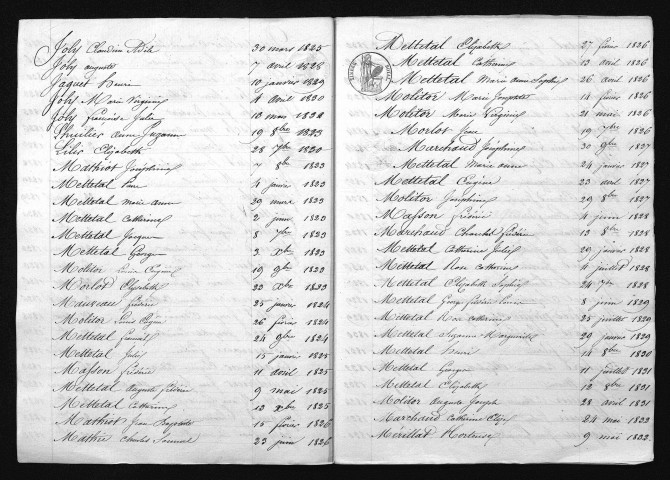 Joly Claudine Adèle 30 mars 1825
Joly auguste 7 avril 1828
Jaquet henri 10 janvier 1829
Joly Marie Virginie 4 avril 1830
Joly françoise Julie 10 mars 1832
anne Suzanne 19 8bre 1823
Elisabeth 28 7bre 1820
Mathiot Joséphine 7 8bre 1823
Mettetal 4 janvier 1823
Mettetal marie anne 29 mars 1823
Mettetal Catherine 2 juin 1823
Mettetal Jacques 8 7bre 1823
Mettetal George 3 Xbre 1823
Molitor Eugénie 19 9bre 1823
Morlot Elisabeth 20 Xbre 1823
fréderic 25 janvier 1824
Molitor Louis Eugène 26 février 1824
Mettetal 24 9bre 1824
Mettetal Julie 15 janvier 1825
Masson fréderic 11 avril 1825
Mettetal auguste fréderic 9 mai 1825
Mettetal Catherine 13 Xbre 1825
Mathiot Jean Baptiste 15 février 1826
Charles Samuel 23 juin 1826
Mettetal Elizabeth 27 février 1826
Mettetal Catherine 13 avril 1826
Mettetal Marie anne Sophie 26 avril 1826
Molitor Marie Josephte 14 février 1826
Molitor Marie Virginie 21 mai 1826
Morlot 19 7bre 1826
Marchand Joséphine 30 9bre 1827
Mettetal Marie anne 24 janvier 1827
Mettetal Eugénie 23 avril 1827
Molitor Joséphine 29 8bre 1827
Masson 4 juin 1828
Marchand 13 8bre 1828
Mettetal Catherine Julie 29 janvier 1828
Mettetal Rose Catherine 4 juillet 1828
Mettetal Elizabeth Sophie 24 7bre 1828
Mettetal George fréderic 8 juin 1829
Mettetal Rose Catherine 25 juillet 1829
Mettetal Suzanne Marguerite 29 janvier 1829
Mettetal henri 14 8bre 1830
Mettetal George 11 juillet 1831
Mettetal Elizabeth 12 8bre 1831
Molitor auguste Joseph 28 avril 1831
Marchand Catherine Elise 24 mai 1832
Mérillat Hortense 9 mai 1832